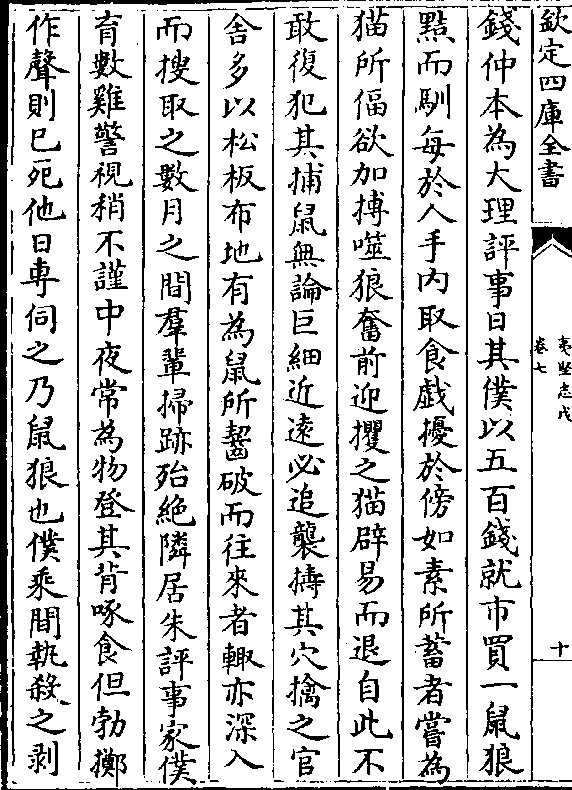 欽定四庫全書
夷堅志戊
卷七
十
錢仲本為大理評事日其僕以五百錢就市買一鼠狼
點而馴每於人手內取食戯擾於傍如素所蓄者嘗為
猫所偪欲加搏噬狼奮前迎攫之猫辟易而退自此不
敢復犯其捕鼠無論巨細近逺必追襲擣其穴擒之官
舍多以松板布地有為鼠所齧破而往來者輙亦深入
而搜取之數月之間羣輩掃跡殆絶隣居朱評事家僕
育數雞警視稍不謹中夜常為物登其背啄食但勃擲
作聲則已死他日専伺之乃鼠狼也僕乘間執殺之剥